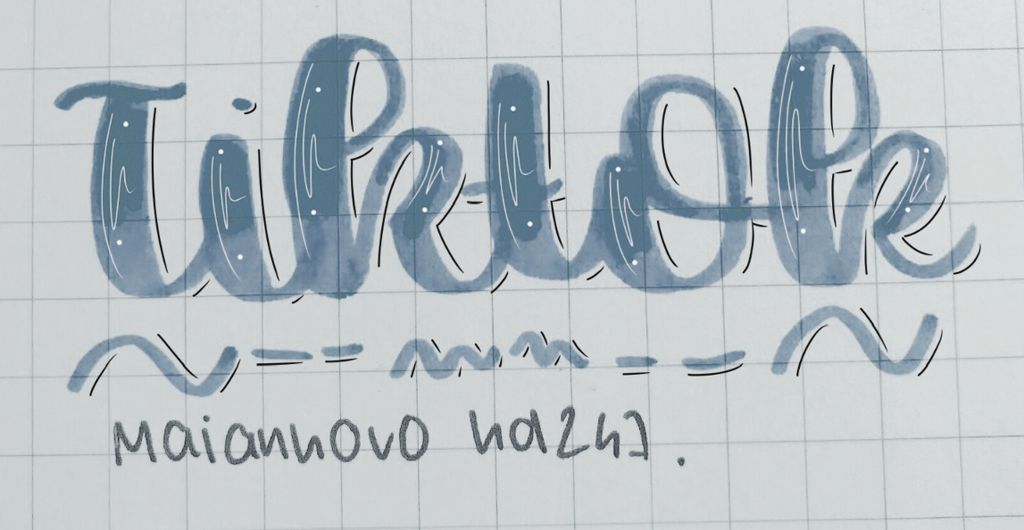 Tiktok
Maiannovo hd2hJ.